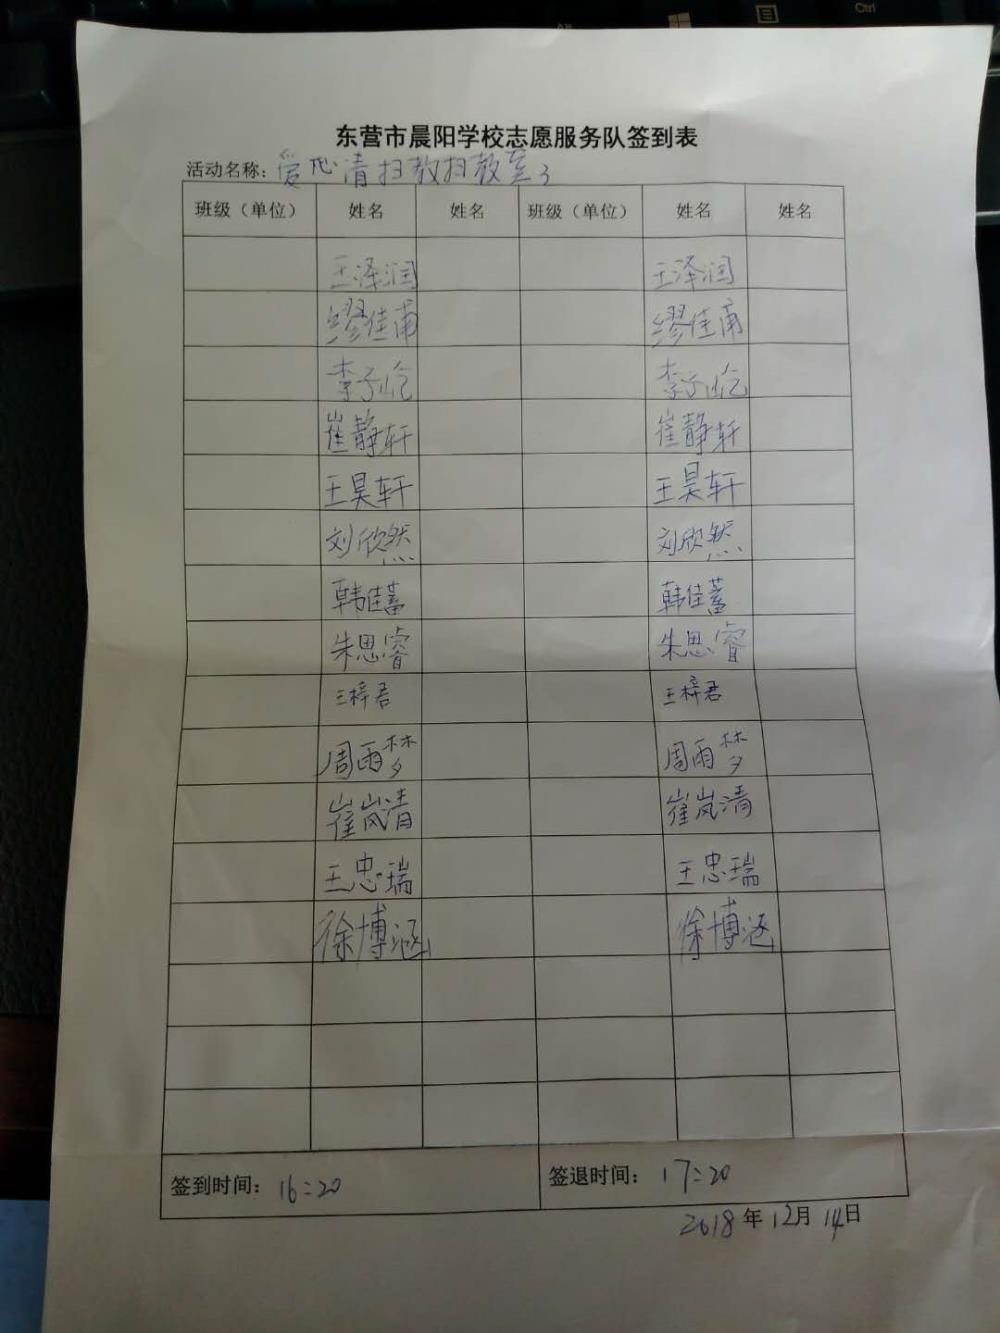 东营市晨阳学校志愿服务队签到表
活动名称：爱心清扫教扫教室3
班级（单位） 姓名 姓名 班级（单位） 姓名 姓名
王泽润 王泽润
缪佳甫 缪佳甫
李子屹 李子屹
崔静轩 崔静轩
王昊轩 王昊轩
刘欣然 刘欣然
韩佳蓄 韩佳蓄
朱思睿 朱思睿
王梓君 王梓君
周雨梦 周雨梦
崔岚清 崔岚清
王忠瑞 王忠瑞
徐博涵 徐博涵
签到时间：16:20 签退时间：17:20
2018年12月14日
Ctrl